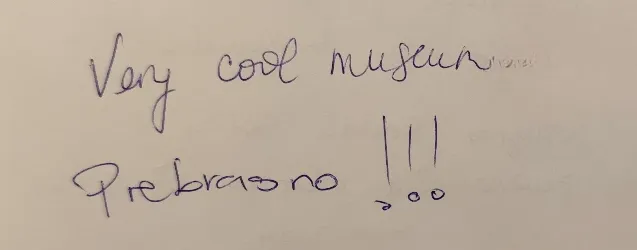 Very cool museum
Prebrasno !!!